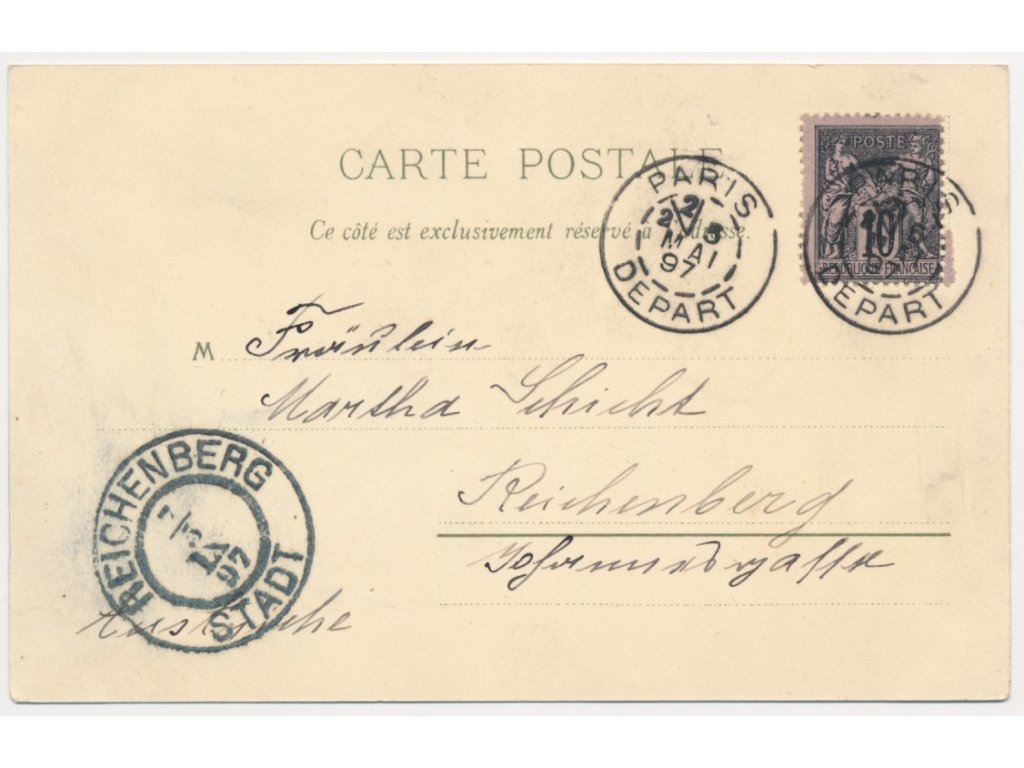 CARTE POSTALE
Ce côté est exclusivement réservé à l'adresse.
PARIS
MAI
97
DEPART
POSTE
10
REPUBLIQUE FRANÇAISE
PARIS
97
DEPART
M Fräulein
Martha Schicht
Reichenberg
Johannesgasse
REICHENBERG
97
STADT
Autriche